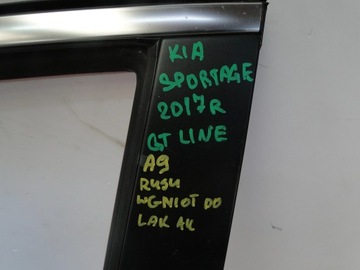 KIA
SPORTAGE
2017R
GT LINE
A9
RUSU
WGNIOT DO
LAK